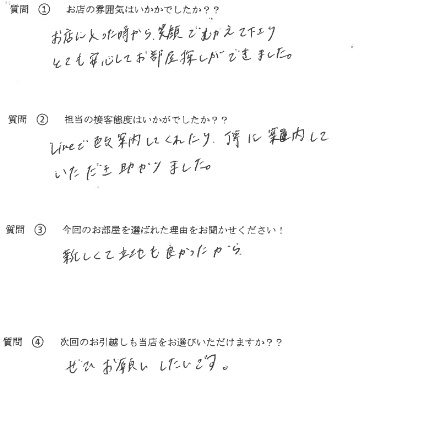 質問 ① お店の雰囲気はいかかでしたか??
お店に入った時から、笑顔でむかえて下さり
とても安心してお部屋探しができました。
質問 ② 担当の接客態度はいかがでしたか??
Lineで 案内してくれたり、 に 案内して
いただき助かりました。
質問 ③ 今回のお部屋を選ばれた理由をお聞かせください!
新しくて立地も良かったから
質問 ④ 次回のお引越しも当店をお選びいただけますか??
ぜひお願いしたいです。